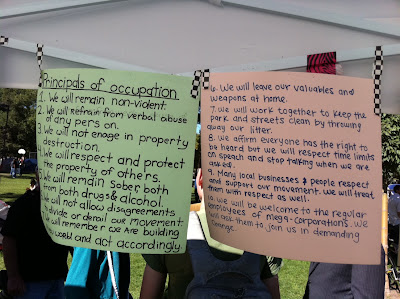 Principals of occupation
1. We will remain non-violent.
2. We will refrain from verbal abuse
of any person.
3. We will not enage in property
destruction.
4. We will respect and protect
the property of others.
5. We will remain sober, both
from both drugs & alcohol.
We will not allow disagreements
to divide or derail our movement.
We will remember we are building
world and act accordingly.
6. We will leave our valuables and
weapons at home.
7. We will work together to keep the
park and streets clean by throwing
away our litter.
8. We affirm everyone has the right to
be heard but we will respect time limits
on speach and stop talking when we are
asked.
9. Many local businesses & people respect
and support our movement. We will treat
them with respect as well.
10. We will be welcome to the regular
employees of mega-corporations. We
will ask them to join us in demanding
change.